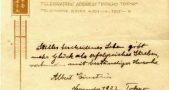 TELEGRAPHIC ADDRESS "IMPEHO TOKYO"
Stilles bescheidenes Leben gibt
mehr Glück als erfolgreiches Streben
verbunden mit beständiger Unruhe.
Albert Einstein
November 1922 Tokyo